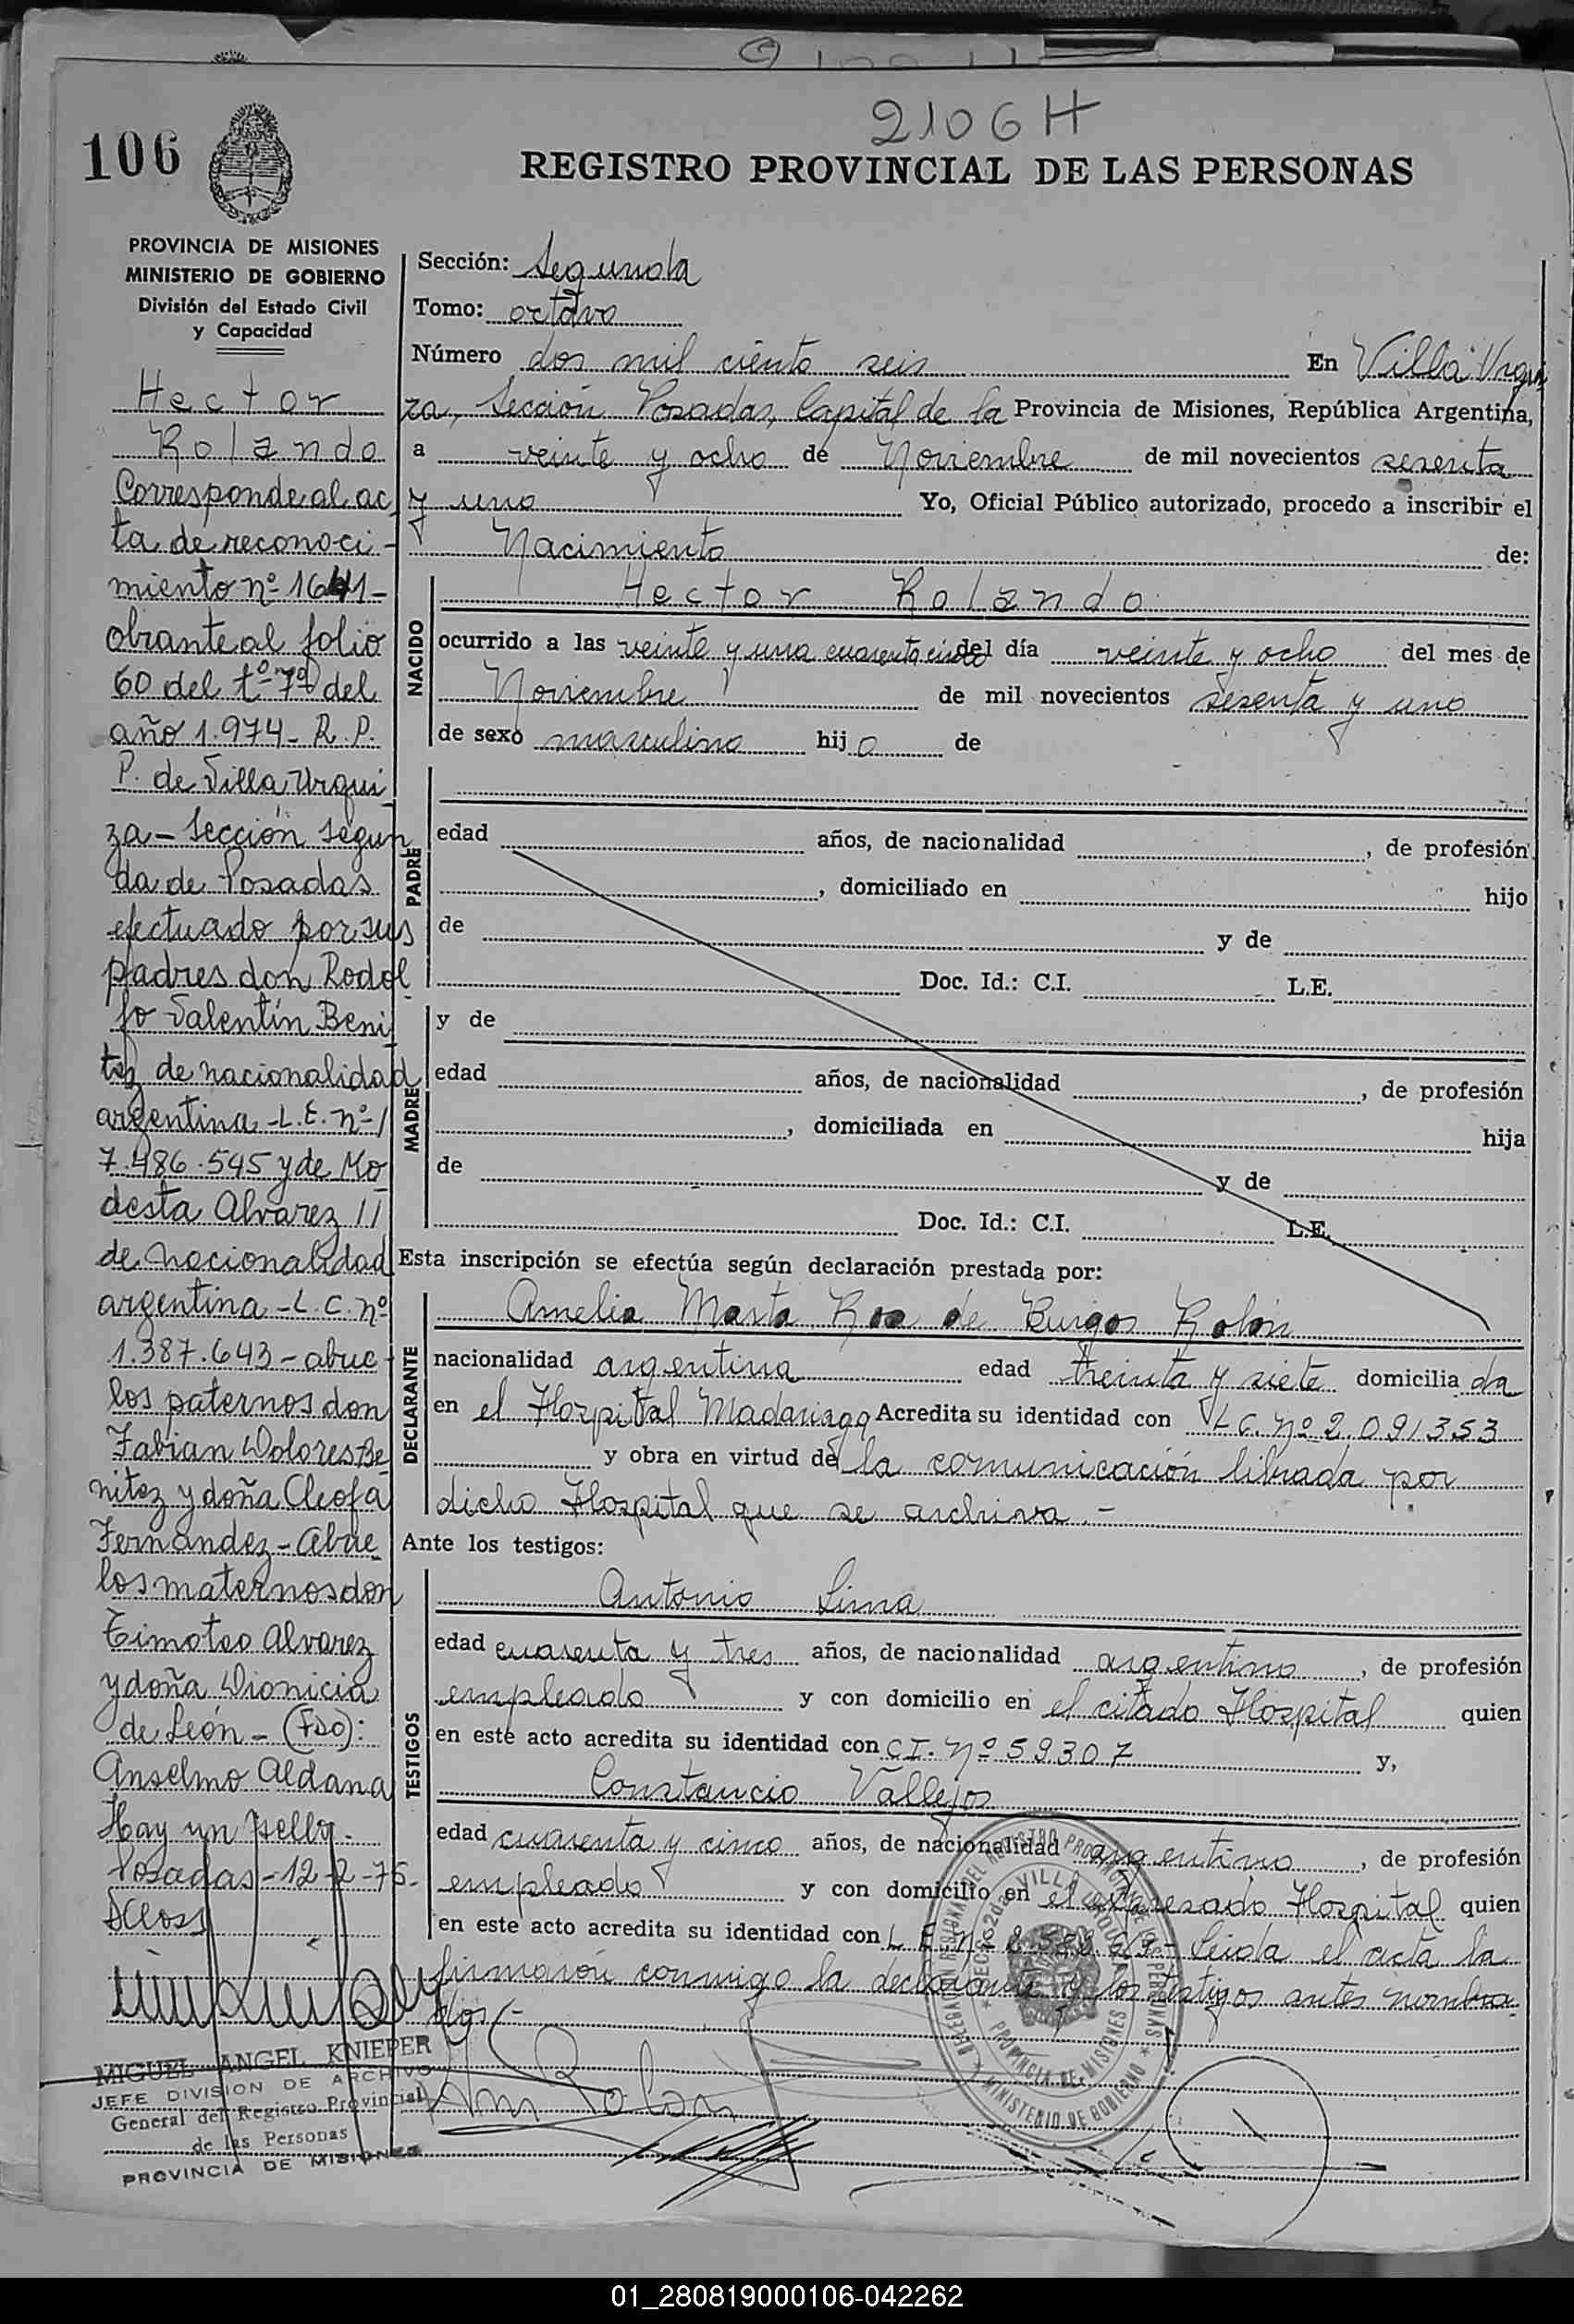 2106 H
106
REGISTRO PROVINCIAL DE LAS PERSONAS
PROVINCIA DE MISIONES
MINISTERIO DE GOBIERNO
División del Estado Civil
y Capacidad
Hector
Rolando
Corresponde al ac
ta de reconoci-
miento nº 1641-
obrante al folio
60 del tº 7º del
año 1.974- R. P.
P. de Villa Urqui
za - Sección Segun
da de Posadas
efectuado por sus
padres don Rodol
fo Valentín Beni
tez de nacionalidad
argentina - L.E. nº
7.486.545 y de Mo
desta Alvarez //
de nacionalidad
argentina - L.C. nº
1.387.643 - abue
los paternos don
Fabian Dolores Be
nitez y doña Cleofa
Fernandez - Abue
los maternos don
Timoteo Alvarez
y doña Dionicia
de León - (Fdo):
Anselmo Aldana
Hay un sello.-
Posadas - 12-2-75-
MIGUEL ANGEL KNIEPER
JEFE DIVISION DE ARCHIVO
General del Registro Provincial
de las Personas
PROVINCIA DE MISIONES
Sección: Segunda
Tomo: octavo
Número dos mil ciento seis En Villa Urqui
za, Sección Posadas, Capital de la Provincia de Misiones, República Argentina,
a veinte y ocho de Noviembre de mil novecientos sesenta
y uno Yo, Oficial Público autorizado, procedo a inscribir el
Nacimiento de:
NACIDO
Hector Rolando
ocurrido a las veinte y una cuarenta cinco del día veinte y ocho del mes de
Noviembre de mil novecientos sesenta y uno
de sexo masculino hijo de
PADRE
edad años, de nacionalidad , de profesión
, domiciliado en hijo
de y de
Doc. Id.: C.I. L.E.
y de
MADRE
edad años, de nacionalidad , de profesión
, domiciliada en hija
de y de
Doc. Id.: C.I. L.E.
Esta inscripción se efectúa según declaración prestada por:
DECLARANTE
Amelia Marta Roa de Burgos Rolón
nacionalidad argentina edad treinta y siete domiciliada
en el Hospital Madariaga Acredita su identidad con L.C. Nº 2.091353
y obra en virtud de la comunicación librada por
dicho Hospital que se archiva.-
Ante los testigos:
TESTIGOS
Antonio Lima
edad cuarenta y tres años, de nacionalidad argentino, de profesión
empleado y con domicilio en el citado Hospital quien
en este acto acredita su identidad con C.I. Nº 59307 y,
Constancio Vallejos
edad cuarenta y cinco años, de nacionalidad argentino, de profesión
empleado y con domicilio en el expresado Hospital quien
en este acto acredita su identidad con L.E. Leida el acta la
firmaron conmigo la declarante y los testigos antes nombra
dos.-
DELEGACION REGIONAL DEL REGISTRO PROVINCIAL DE LAS PERSONAS
MINISTERIO DE GOBIERNO
PROVINCIA DE MISIONES
01_280819000106-042262